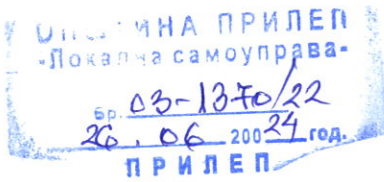 ОПШТИНА ПРИЛЕП
-Локална самоуправа-
бр. 03-1370/22
26. 06 200 24 год.
ПРИЛЕП